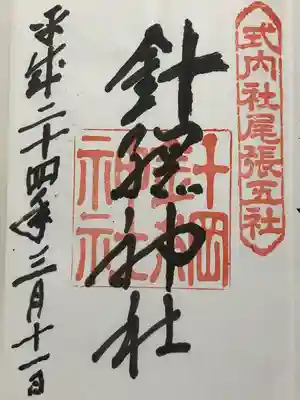 式内社尾張五社
針綱神社
針綱神社
平成二十四年三月十一日